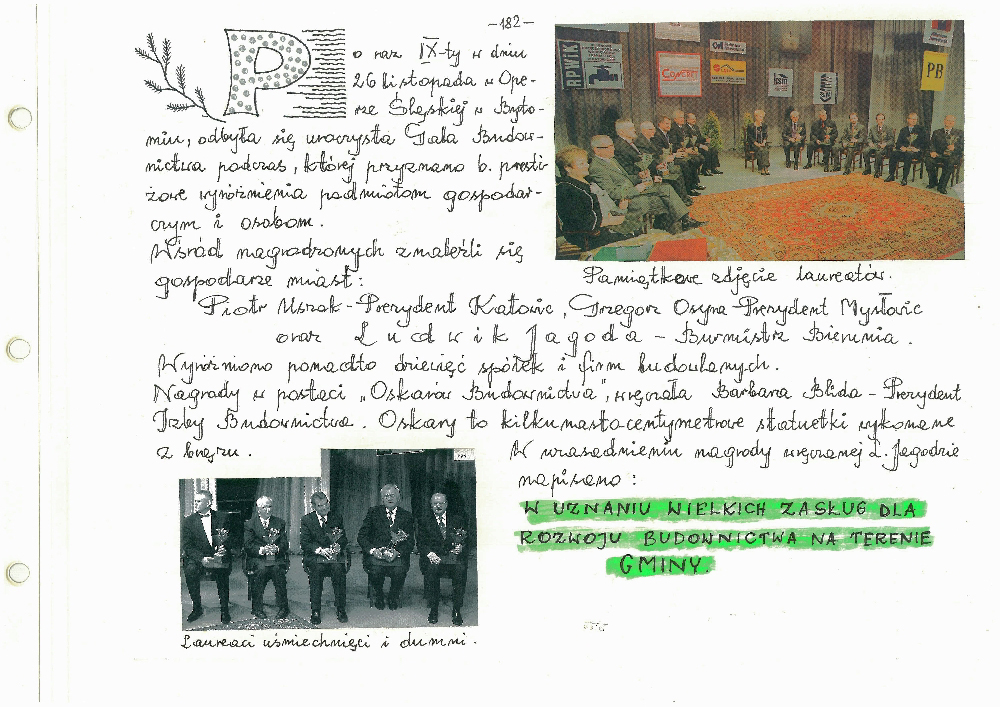 -182-
Po raz IX-ty w dniu
26 listopada w Ope-
rze Śląskiej w Byto-
miu, odbyła się uroczysta Gala Budow-
nictwa podczas, której przyznano b. presti-
żowe wyróżnienia podmiotom gospodar-
czym i osobom.
Wśród nagrodzonych znaleźli się
gospodarze miast:
Piotr Uszok - Prezydent Katowic, Grzegorz Osyra - Prezydent Mysłowic
oraz Ludwik Jagoda - Burmistrz Bierunia.
Wyróżniono ponadto dziewięć spółek i firm budowlanych.
Nagrody w postaci „Oskarów Budownictwa", wręczała Barbara Blida - Prezydent
Izby Budownictwa. Oskary to kilkunastocentymetrowe statuetki wykonane
z brązu.
W uzasadnieniu nagrody wręczanej L. Jagodzie
napisano:
W UZNANIU WIELKICH ZASŁUG DLA
ROZWOJU BUDOWNICTWA NA TERENIE
GMINY.
Pamiątkowe zdjęcie laureatów.
Laureaci uśmiechnięci i dumni.
RPWIK
PB